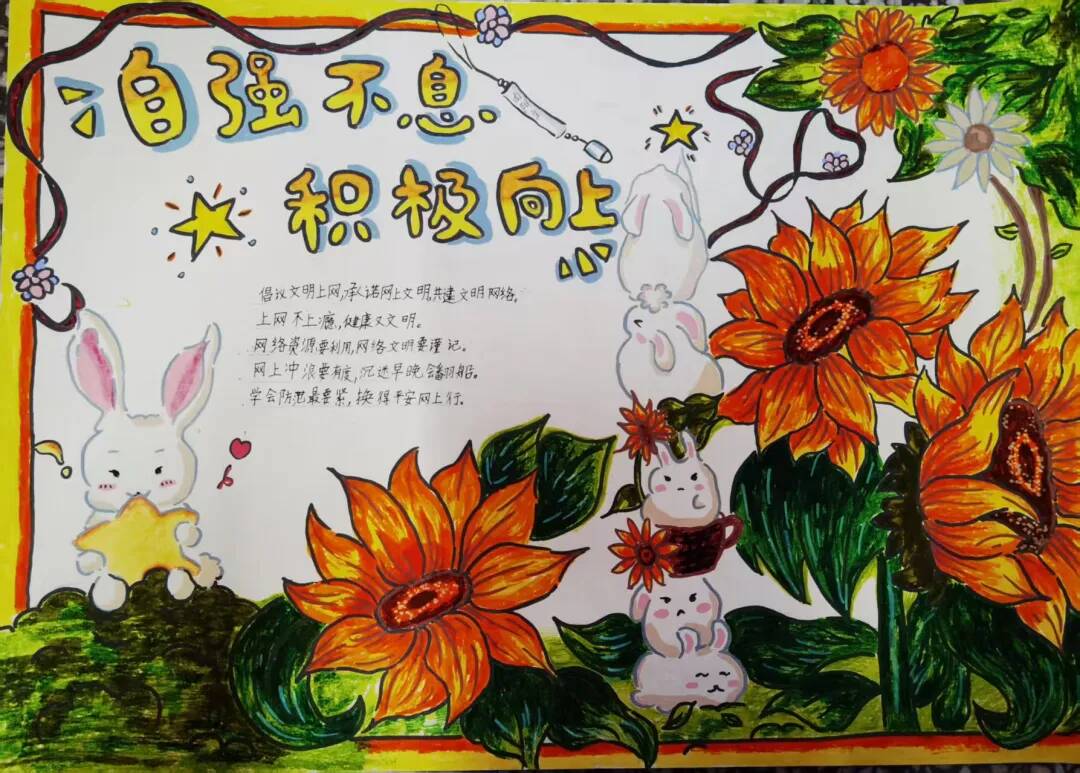 自强不息
积极向上
倡议文明上网,承诺网上文明,共建文明网络。
上网不上瘾,健康又文明。
网络资源要利用,网络文明要谨记。
网上冲浪要有度,沉迷早晚会翻船。
学会防范最要紧,换得平安网上行。